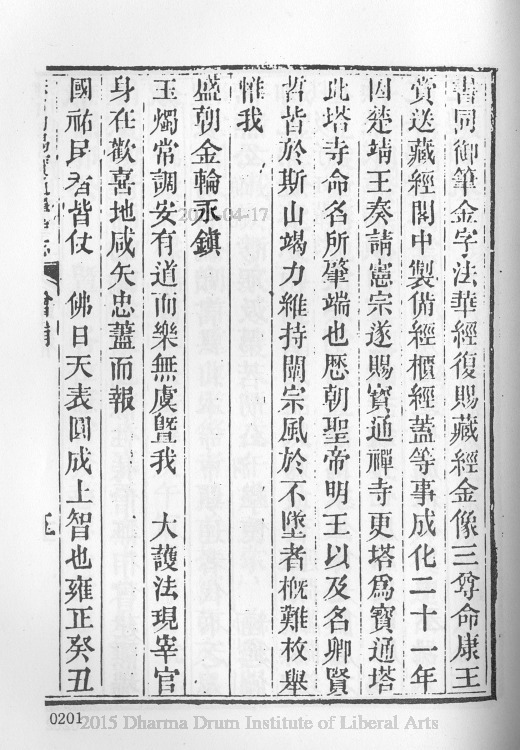 書同御筆金字法華經復賜藏經金像三尊命康王
賫送藏經閣中製俻經櫃經蓋等事成化二十一年
因楚靖王奏請憲宗遂賜寳通禪寺更塔爲寳通塔
此塔寺命名所肇端也歷朝聖帝明王以及名卿賢
哲皆於斯山竭力維持闡宗風於不墜者槪難枚舉
惟我
盛朝金輪永鎭
玉燭常調安有道而樂無虞曁我 大護法現宰官
身在歡喜地咸矢忠藎而報
國祐民者皆仗 佛日天表圓成上智也雍正癸丑
2015-04-17
0201
2015 Dharma Drum Institute of Liberal Arts